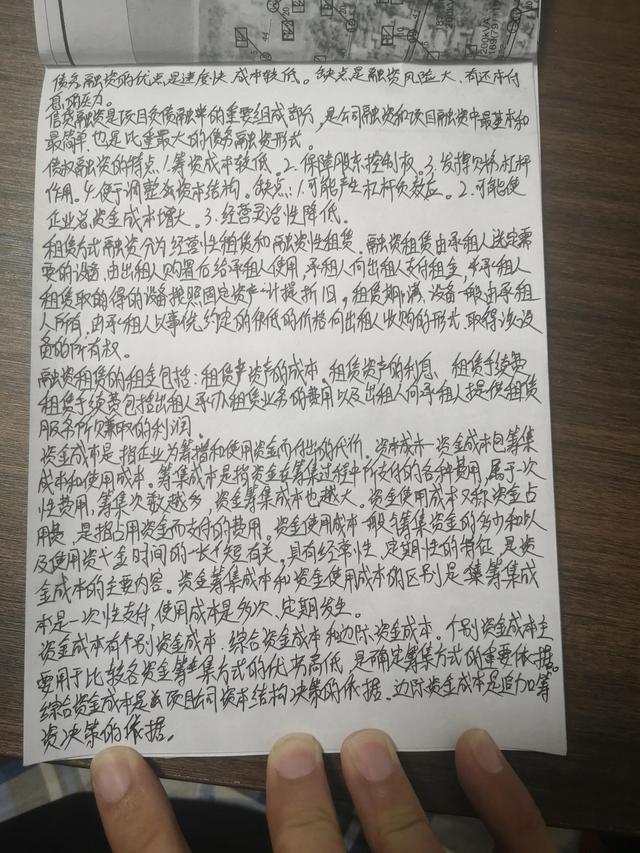 200kVA
债务融资的优点是速度快、成本较低。缺点是融资风险大,有还本付
息的压力。
信贷融资是项目负债融资的重要组成部分,是公司融资和项目融资中最基本和
最简单,也是比重最大的债务融资形式。
债权融资的特点:1.筹资成本较低。2.保障股东控制权。3.发挥财务杠杆
作用。4.便于调整资本结构。缺点:1.可能产生杠杆负效应。2.可能使
企业总资金成本增大。3.经营灵活性降低。
租赁方式融资分为经营性租赁和融资性租赁。融资租赁由承租人选定需
要的设备,由出租人购置后给承租人使用,承租人向出租人支付租金,承租人
租赁取的得的设备按照固定资产计提折旧,租赁期满,设备一般由承租
人所有,由承租人以事先约定的很低的价格向出租人收购的形式取得该设
备的所有权。
融资租赁的租金包括:租赁资产的成本、租赁资产的利息、租赁手续费
租赁手续费包括出租人承办租赁业务的费用以及出租人向承租人提供租赁
服务所赚取的利润
资金成本是指企业为筹措和使用资金而付出的代价。资本成本 资金成本包筹集
成本和使用成本。筹集成本是指资金在筹集过程中所支付的各种费用,属于一次
性费用,筹集次数越多,资金筹集成本也越大。资金使用成本又称资金占
用费,是指占用资金而支付的费用。资金使用成本一般与筹集资金的多少和以
及使用资金时间的长短有关,具有经常性、定期性的特征,是资
金成本的主要内容。资金筹集成本和资金使用成本的区别是筹集成
本是一次性支付,使用成本是多次、定期发生。
资金成本有个别资金成本、综合资金成本和边际资金成本。个别资金成本主
要用于比较各资金筹集方式的优劣高低,是确定筹集方式的重要依据。
综合资金成本是项目公司资本结构决策的依据。边际资金成本是追加筹
资决策的依据。